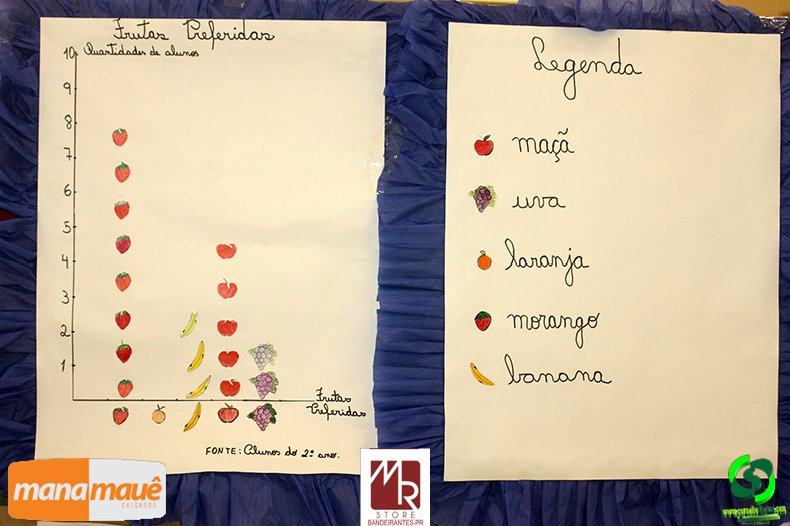 Frutas Preferidas
Quantidades de alunos
10
9
8
7
6
5
4
3
2
1
Frutas
Preferidas
FONTE: Alunos do 2º ano.
Legenda
maçã
uva
laranja
morango
banana
manamauê
CALÇADOS
MR
STORE
BANDEIRANTES-PR